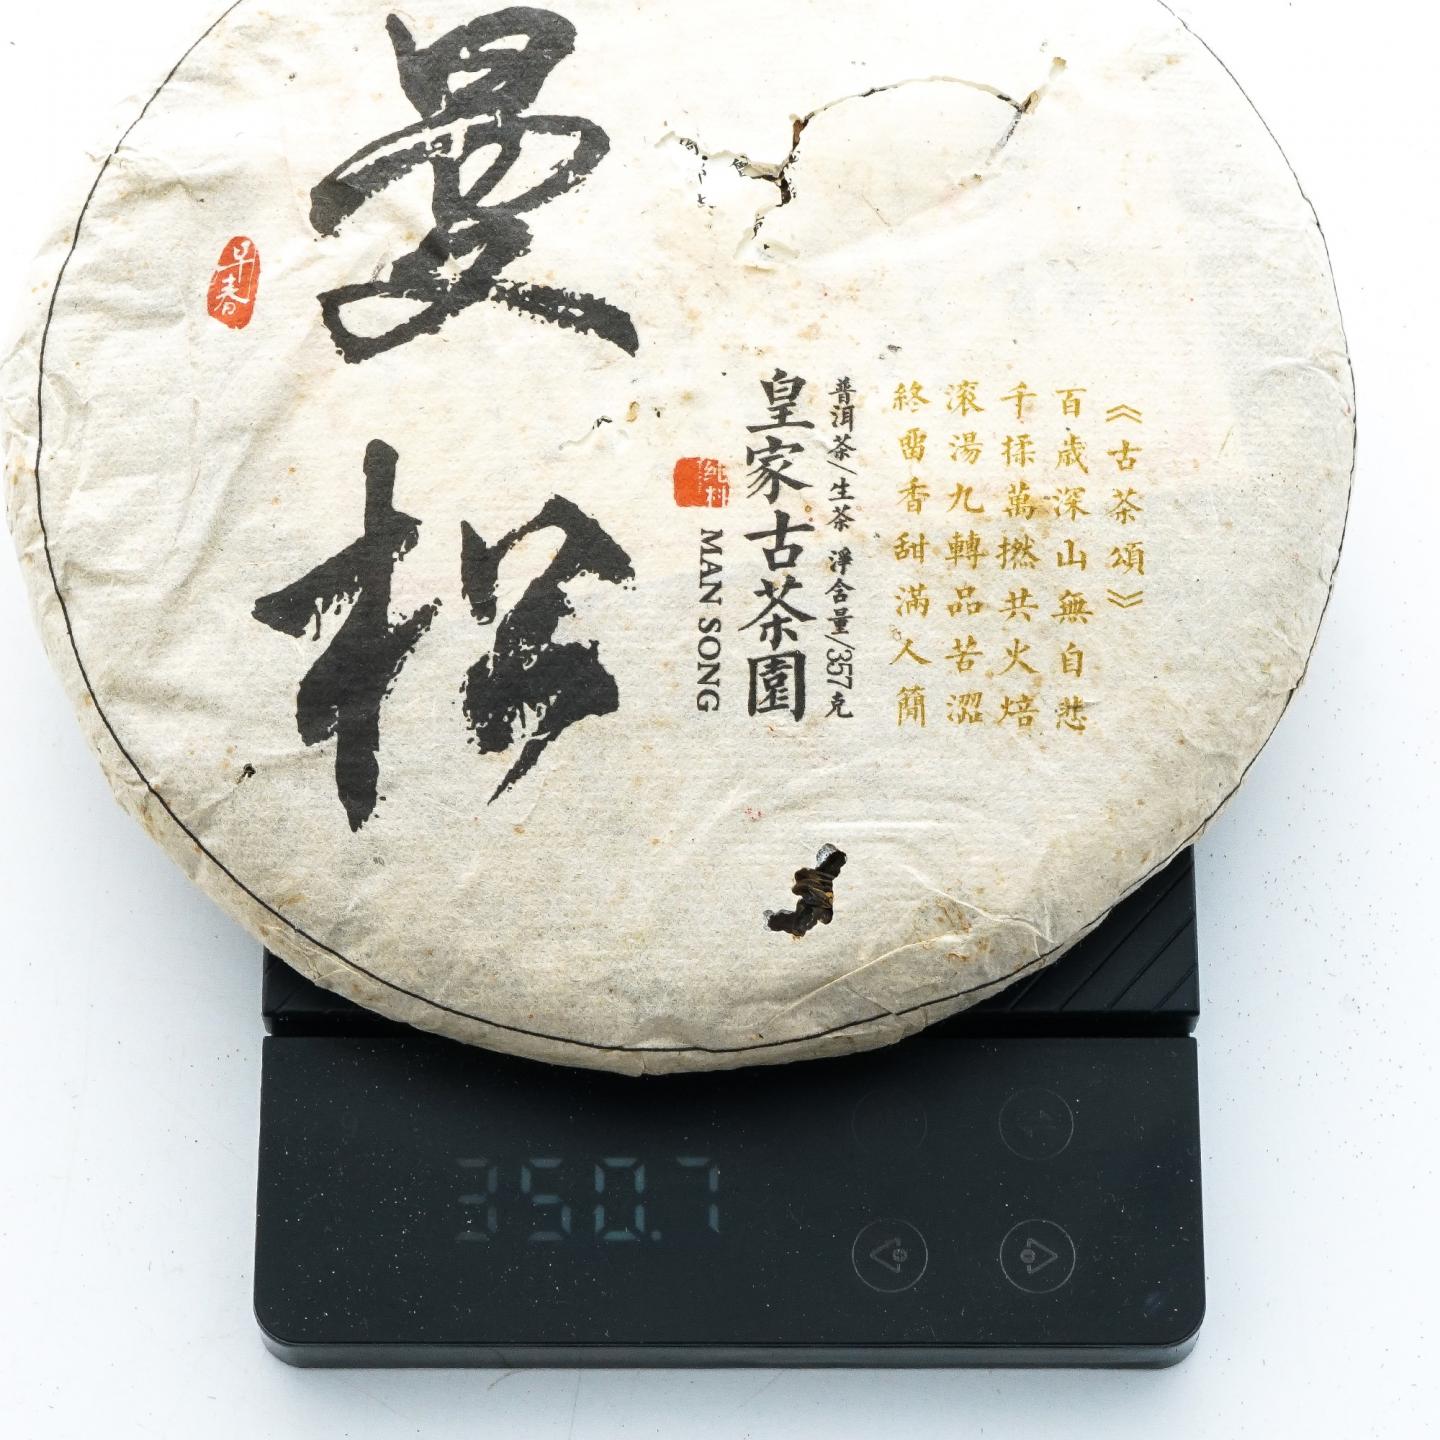 曼松
早春
纯料
MAN SONG
皇家古茶園
普洱茶/生茶 淨含量/357克
《古茶頌》
百歲深山無自悲
千揉萬撚共火焙
滚湯九轉品苦澀
終留香甜滿人間
350.7